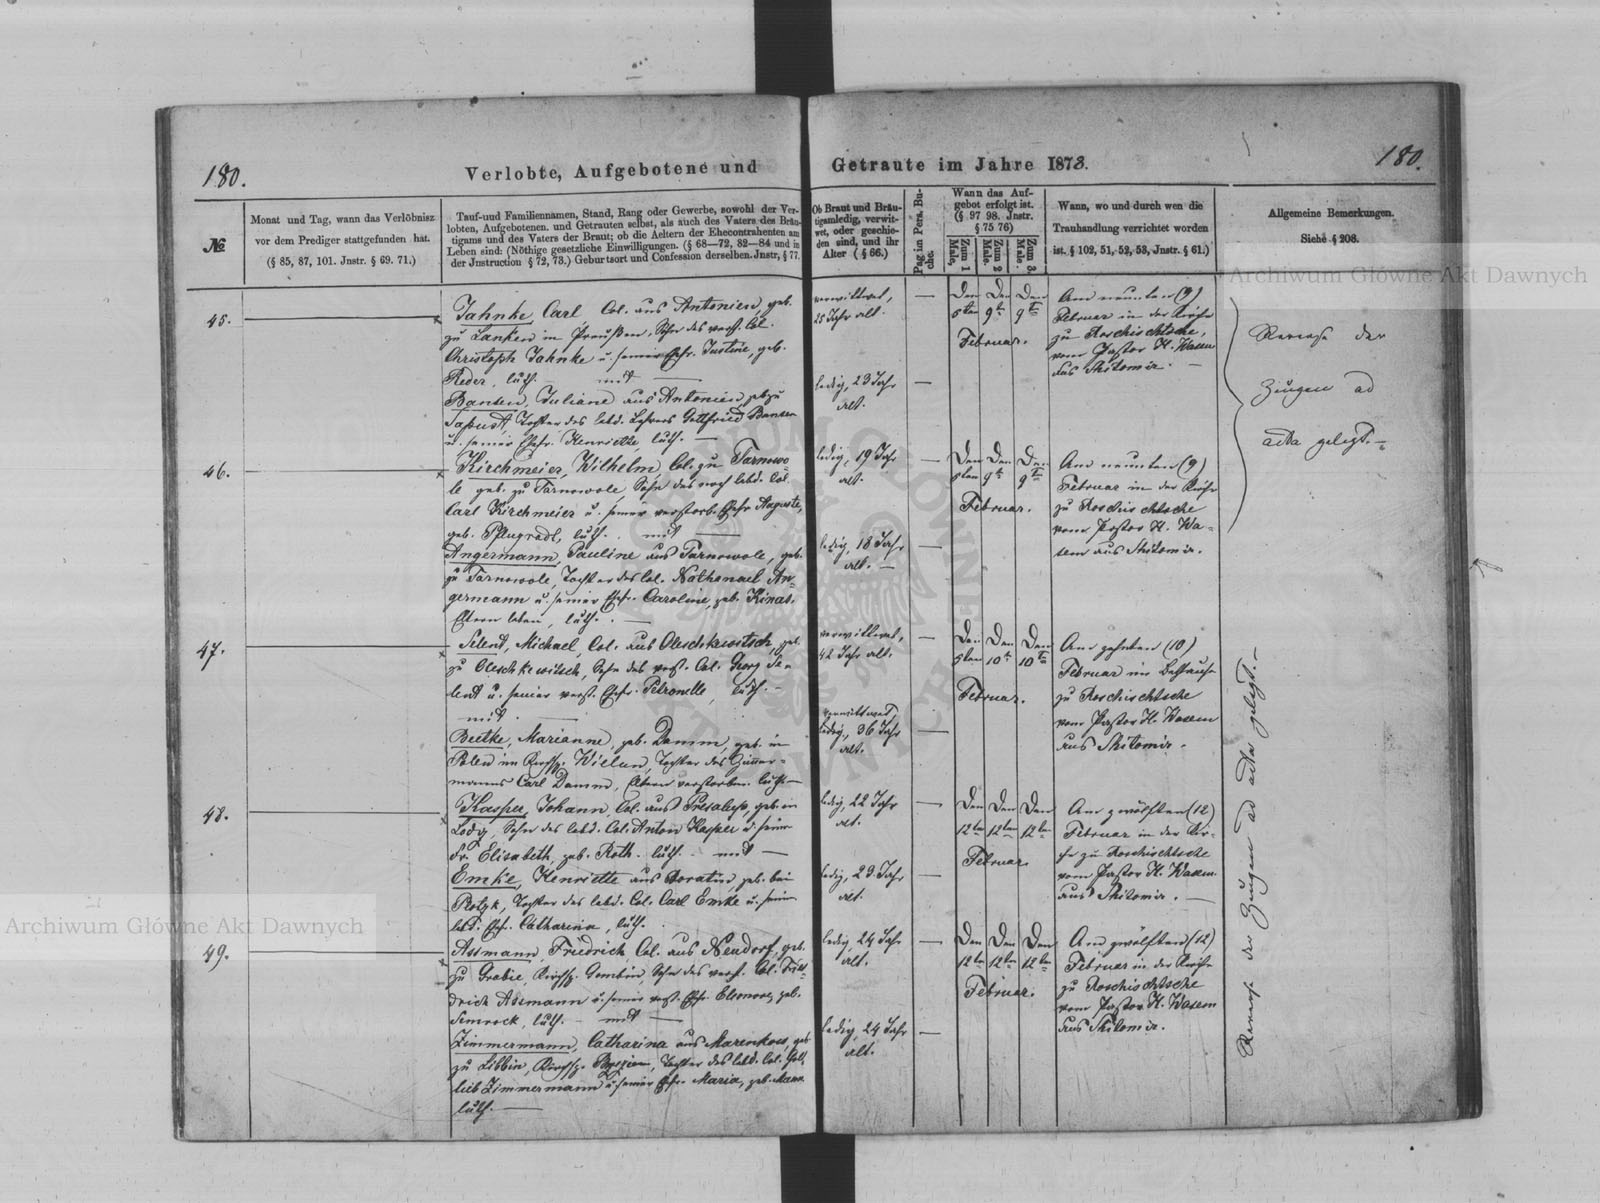 180.
Verlobte, Aufgebotene und Getraute im Jahre 1873.
180.
№
Monat und Tag, wann das Verlöbnisz
vor dem Prediger stattgefunden hat.
(§ 85, 87, 101. Jnstr. § 69. 71.)
Tauf-uud Familiennamen, Stand, Rang oder Gewerbe, sowohl der Ver-
lobten, Aufgebotenen. und Getrauten selbst, als auch des Vaters des Bräu-
tigams und des Vaters der Braut; ob die Aeltern der Ehecontrahenten am
Leben sind: (Nöthige gesetzliche Einwilligungen. (§ 68—72, 82—84 und in
der Jnstruction § 72, 73.) Geburtsort und Confession derselben. Jnstr, § 77.
Ob Braut und Bräu-
tigam ledig, verwit-
wet, oder geschie-
den sind, und ihr
Alter (§ 66.)
Pag. im Pers. Bu-
che.
Wann das Auf-
gebot erfolgt ist.
(§ 97 98. Jnstr.
§ 75 76)
Zum 1 Male,
Zum 2 Male,
Zum 3. Male.
Wann, wo und durch wen die
Trauhandlung verrichtet worden
ist. § 102, 51, 52, 53, Jnstr. § 61.)
Allgemeine Bemerkungen.
Siehe § 208.
45.
Jahnke, Carl, Col. aus Antonien, geb.
zu Lanken in Preußen, Sohn des verst. Col.
Christoph Jahnke u. seiner Ehefr. Justine, geb.
Reder, luth. — mit —
Banten, Juliane aus Antonien geb. zu
Tochter des lebd. Lehrers Gottfried Banten
u. seiner Ehefr. Henriette luth. —
verwittwet,
25 Jahr alt.
ledig, 23 Jahr
alt.
Den Den Den
5ten 9te 9te
Februar.
Am neunten (9)
Februar in der Kirche
zu Roschischtsche,
vom Pastor H. Wasem
aus Shitomir. —
Reverse der
Zeugen ad
acta gelegt. —
46.
Kirchmeier, Wilhelm, Col. zu Tarnowo-
le geb. zu Tarnowole, Sohn des noch lebd. Col.
Carl Kirchmeier u. seiner verstorb. Ehefr. Auguste,
geb. Pflugradt, luth. . mit —
Angermann, Pauline aus Tarnowole, geb.
zu Tarnowole, Tochter des Col. Nathanael An-
germann u. seiner Ehefr. Caroline, geb. Kinas.
Eltern leben, luth. . —
ledig, 19 Jahr
alt.
ledig, 18 Jahr
alt. —
Den Den Den
5ten 9te 9te
Februar.
Am neunten (9)
Februar in der Kirche
zu Roschischtsche
vom Pastor H. Wa-
sem aus Shitomir.
47.
Selent, Michael, Col. aus Oleschkewitsch, geb.
zu Oleschkewitsch, Sohn des verst. Col. Georg Se-
lent u. seiner verst. Ehefr. Petronelle, luth. —
mit —
Beetke, Marianne, geb. Damm, geb. in
Polen im Kirchsp. Wielun, Tochter des Zimmer-
manns Carl Damm, Eltern verstorben. luth. —
verwittwet,
42 Jahr alt.
verwittwet
ledig, 36 Jahr
alt.
Den Den Den
5ten 10te 10te
Februar.
Am zehnten (10)
Februar im Bethause
zu Roschischtsche
vom Pastor H. Wasem
aus Shitomir.
48.
Kasper, Johann, Col. aus geb. in
Lodz, Sohn des lebd. Col. Anton Kasper u. seiner
Fr. Elisabeth, geb. Roth. luth. — mit —
Emke, Henriette aus Boratin geb. bei
Plotzk, Tochter des lebd. Col. Carl Emke u. seiner
lebd. Ehefr. Catharina, luth.
ledig, 22 Jahr
alt.
ledig, 23 Jahr
alt.
Den Den Den
12ten 12ten 12ten
Februar.
Am zwölften (12)
Februar in der Kir-
che zu Roschischtsche
vom Pastor H. Wasem
aus Shitomir. —
49.
Assmann, Friedrich, Col. aus Neudorf, geb.
zu Grabie, Kirchsp. Gombin, Sohn des verst. Col. Frie-
drich Assmann u. seiner verst. Ehefr. Eleonore, geb.
Semrock, luth. — mit —
Zimmermann, Catharina aus geb.
zu Kirchsp. Tochter des lebd. Col. Gott-
lieb Zimmermann u. seiner Ehefr. Maria, geb.
luth. —
ledig, 24 Jahr
alt.
ledig, 24 Jahr
alt.
Den Den Den
12ten 12ten 12ten
Februar.
Am zwölften (12)
Februar in der Kirche
zu Roschischtsche
vom Pastor H. Wasem
aus Shitomir.
Reverse der Zeugen ad acta gelegt. —
Archiwum Główne Akt Dawnych
Archiwum Główne Akt Dawnych